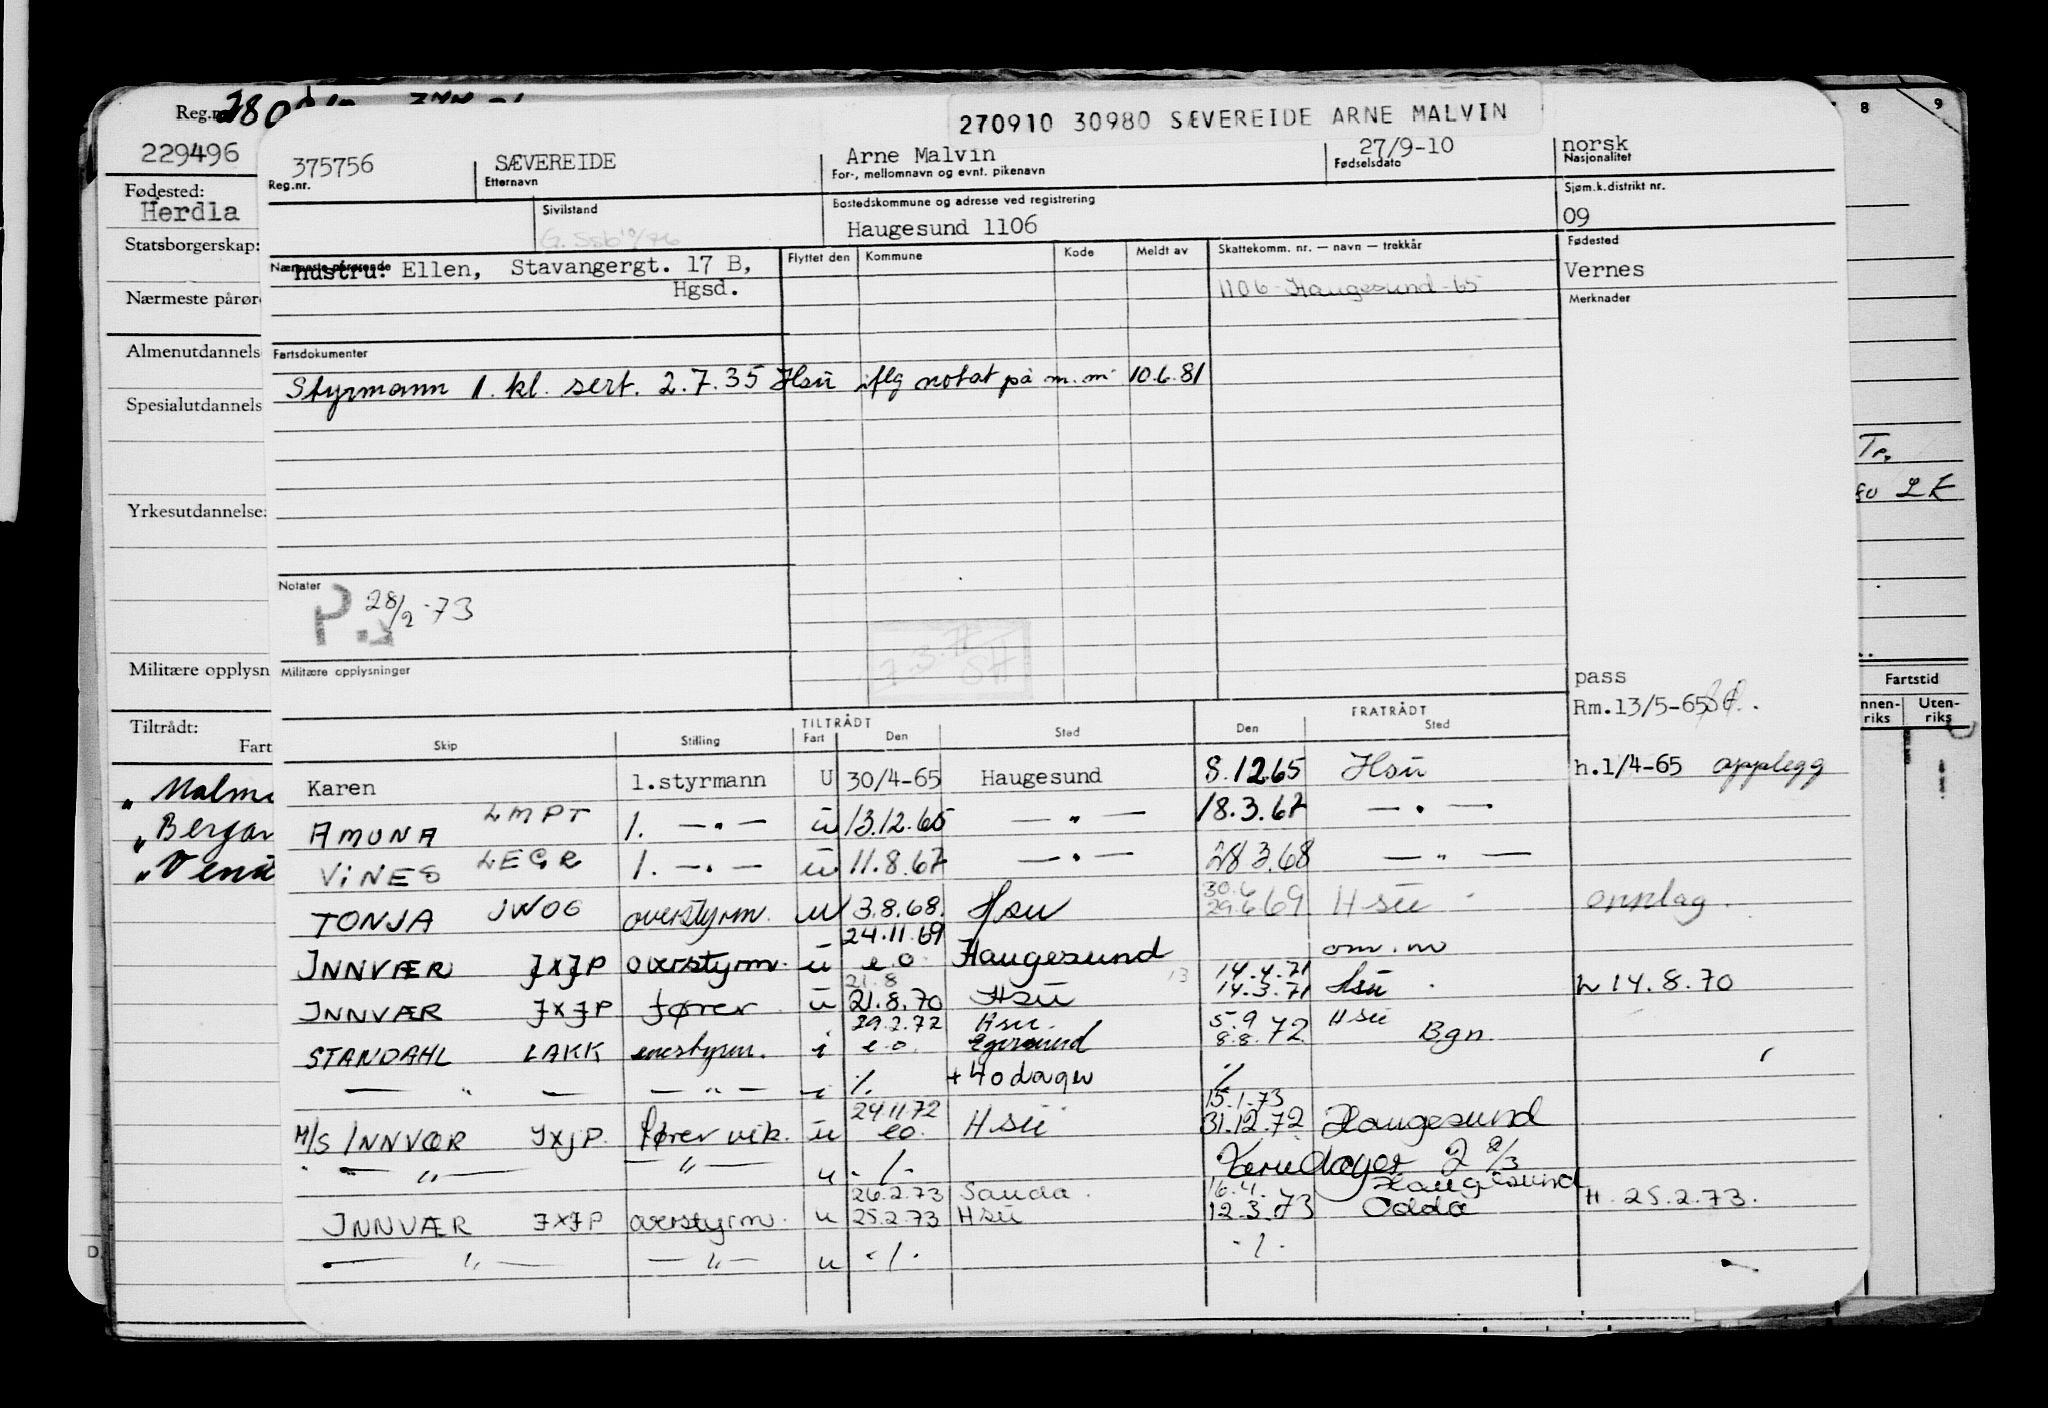 270910 30980 SÆVEREIDE ARNE MALVIN
Reg.nr.
229496
Fødested:
Herdla
Statsborgerskap:
Nærmeste pårøre
Almenutdannels
Spesialutdannels
Yrkesutdannelse:
Militære opplysn
Tiltrådt:
Fart
„ Malm
„ Bergan
„ Venu
D.
375756 SÆVEREIDE Arne Malvin 27/9-10 norsk
Reg.nr. Etternavn For-, mellomnavn og evnt. pikenavn Fødselsdato Nasjonalitet
Sivilstand Bostedskommune og adresse ved registrering Sjøm.k.distrikt nr.
Haugesund 1106 09
Nærmeste pårørende Flyttet den Kommune Kode Meldt av Skattekomm. nr. — navn — trekkår Fødested
hustru: Ellen, Stavangergt. 17 B, Vernes
Hgsd. 1106-Haugesund-65 Merknader
Fartsdokumenter
Styrmann 1. kl. sert. 2.7.35 Hsu iflg notat på m.m. 10.6.81
Notater
P. 28/2-73
Militære opplysninger
pass
Rm.13/5-65
TILTRÅDT FRATRÅDT
Skip Stilling Fart Den Sted Den Sted
Karen 1.styrmann U 30/4-65 Haugesund 8.12.65 Hsu h.1/4-65 opplegg
AMUNA LMPT 1. — " — u 13.12.65 — " — 18.3.67 — " —
VINES LEGR 1. — " — u 11.8.67 — " — 28.3.68 — " —
30.6
TONJA JWOG overstyrm. u 3.8.68. Hsu 29.6 69 Hsu opplag.
24.11.69
INNVÆR JXJP overstyrm. u e.o. Haugesund om.m
21.8 13 14.4.71
INNVÆR JXJP fører u 21.8.70 Hsu 14.3.71 Hsu h 14.8.70
29.2.72 Hsu. 5.9 Hsu
STANDAHL LAKK enestyrm. i e.o. Egersund 8.8.72 Bgn.
— " — — " — i ./. + 40 dager ./.
24.11.72 15.1.73
M/S INNVÆR JXJP. fører vik. u eo. Hsu 31.12.72 Haugesund
— " — — " — u -/- Feriedager 2 2/3
26.2.73 Sauda. 16.4. Haugesund
INNVÆR JXJP overstyrm. u 25.2.73 Hsu 12.3.73 Odda H. 25.2.73.
— " — — " — u -/- -/-
8 9
Tr.
Fartstid
nnen-riks Uten-riks